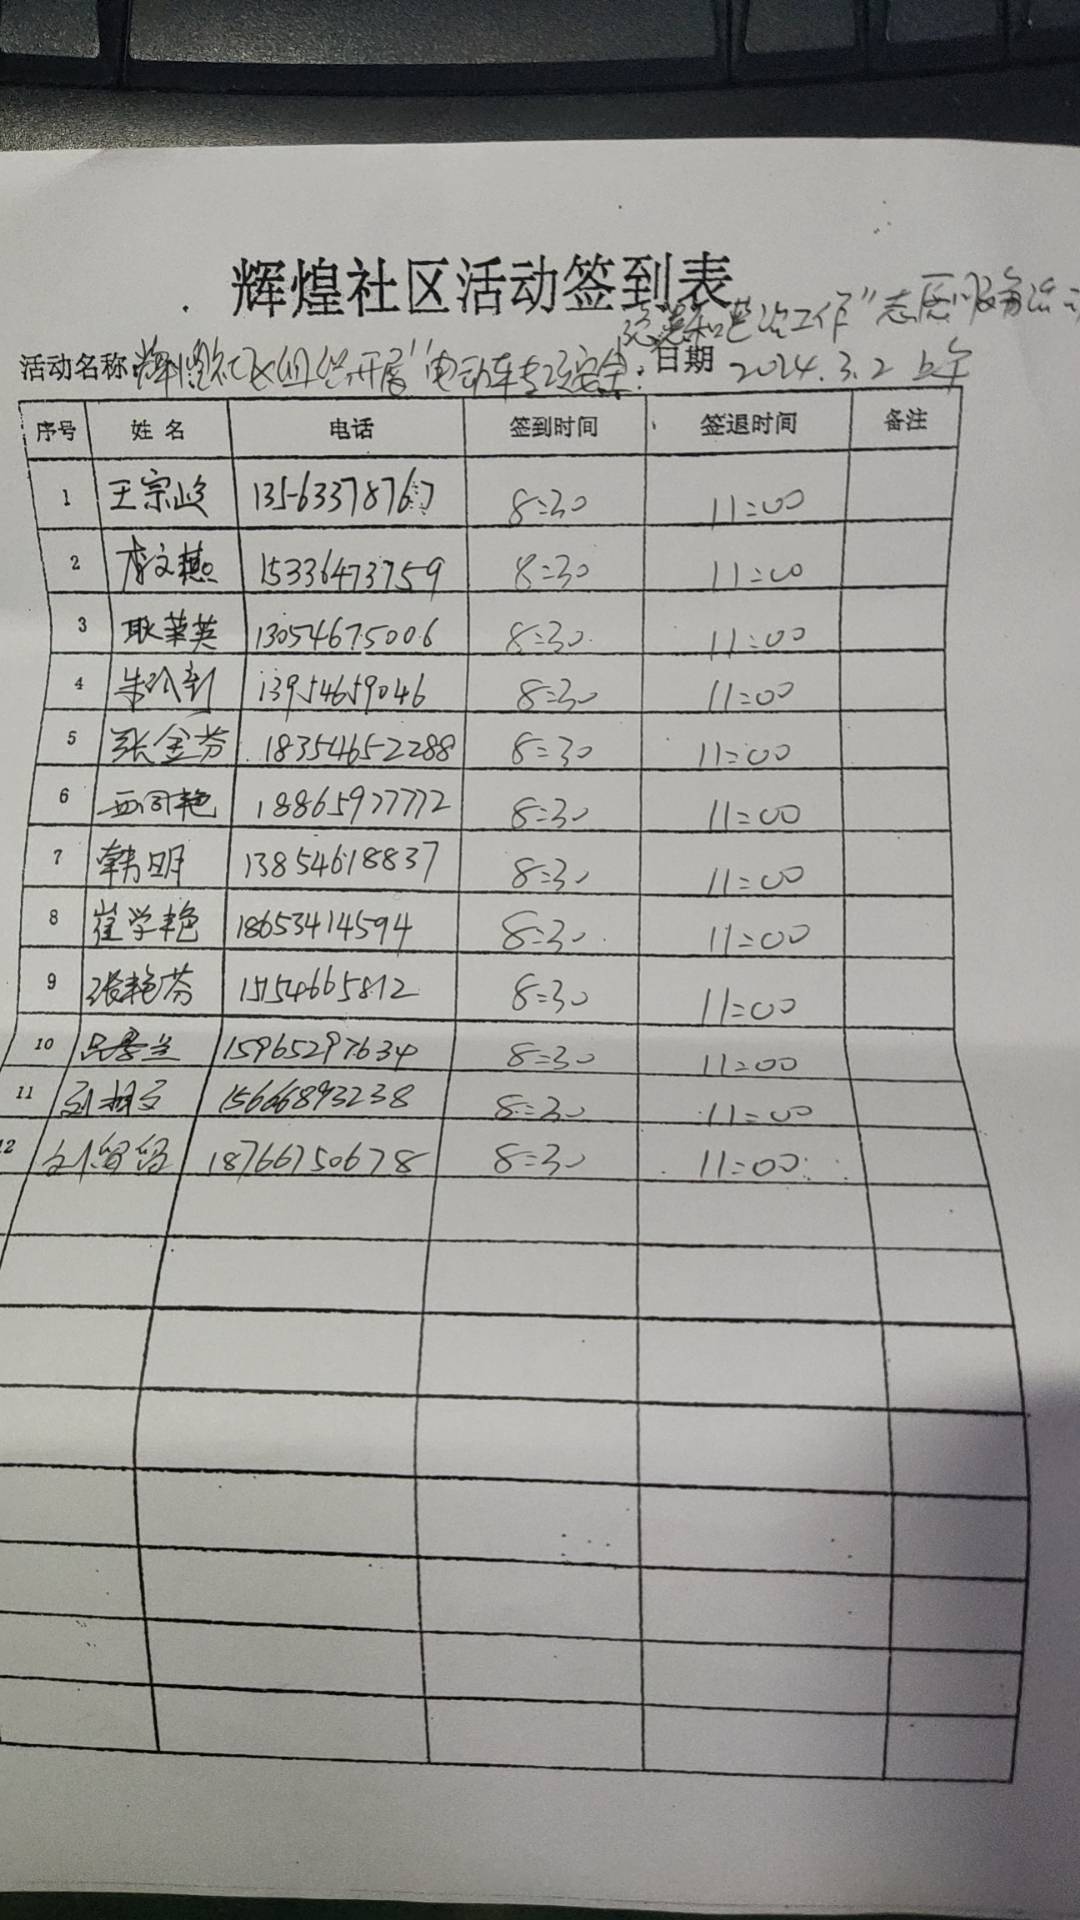 辉煌社区活动签到表
工作"志愿服务活动
活动名称 辉煌社区组织开展"电动车专项安全 日期 2024.3.2 上午
序号 姓名 电话 签到时间 签退时间 备注
1 王宗岐 13563378767 8:30 11:00
2 李文 15336473759 8:30 11:00
3 耿華英 13054675006 8:30 11:00
4 朱 13954659046 8:30 11:00
5 张金芬 18354652288 8:30 11:00
6 艳 18865977772 8:30 11:00
7 韩明 13854618837 8:30 11:00
8 崔学艳 18653414594 8:30 11:00
9 张艳芬 15154665812 8:30 11:00
10 15965297634 8:30 11:00
11 刘相文 15666893238 8:30 11:00
12 18766750678 8:30 11:00